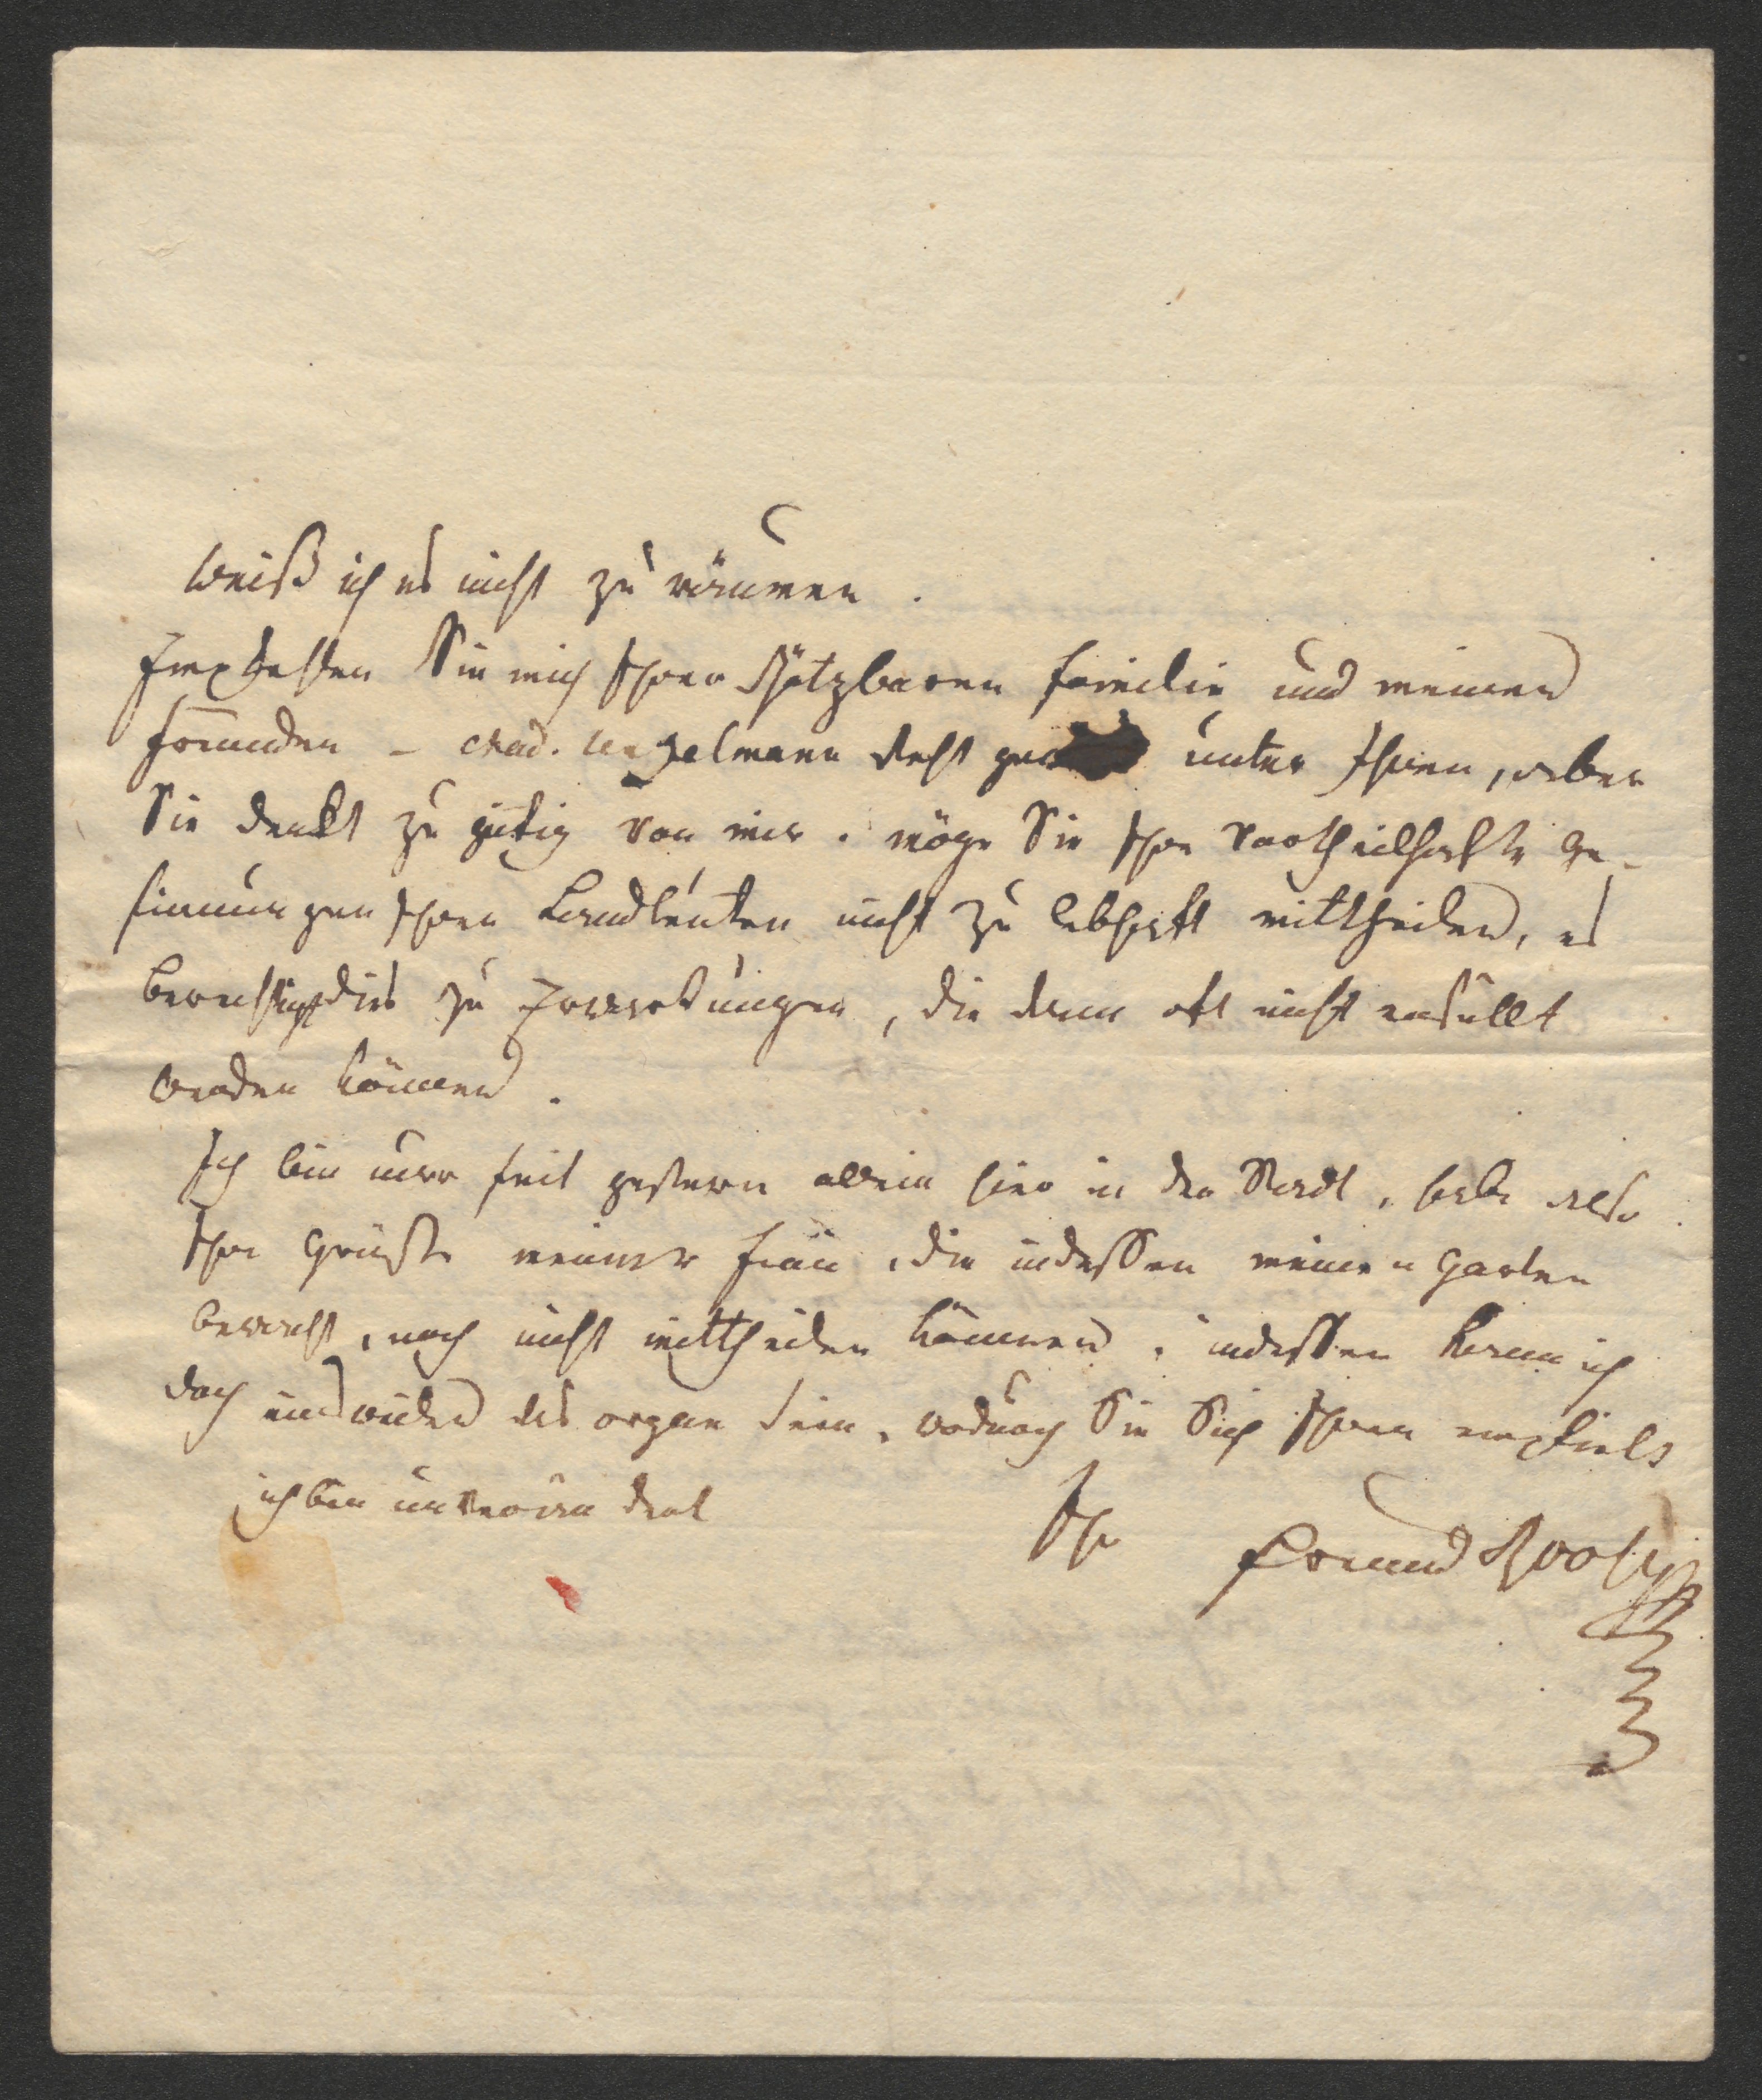 weiß ich es nicht zu räumen.
Empfehlen Sie mich Ihrer schätzbaren familie und meinen
freunden – Mad. Unzelmann steht unter Ihnen, aber
Sie denkt zu gütig von mir. möge Sie Ihre vortheilhafte Ge-
sinnungen Ihren Landleuten nicht zu lebhaft mittheilen, es
berechtigt dies zu Erwartungen, die dann oft nicht erfüllt
werden können.
Ich bin nur seit gestern allein hier in der Stadt, habe also
Ihre Grüße meiner frau, die indessen meinen Garten
bewacht, noch nicht mittheilen können, indessen kann ich
doch und das organ sein, wodurch Sie Sich Ihnen empfielt
ich bin unverändert
Ihr freund